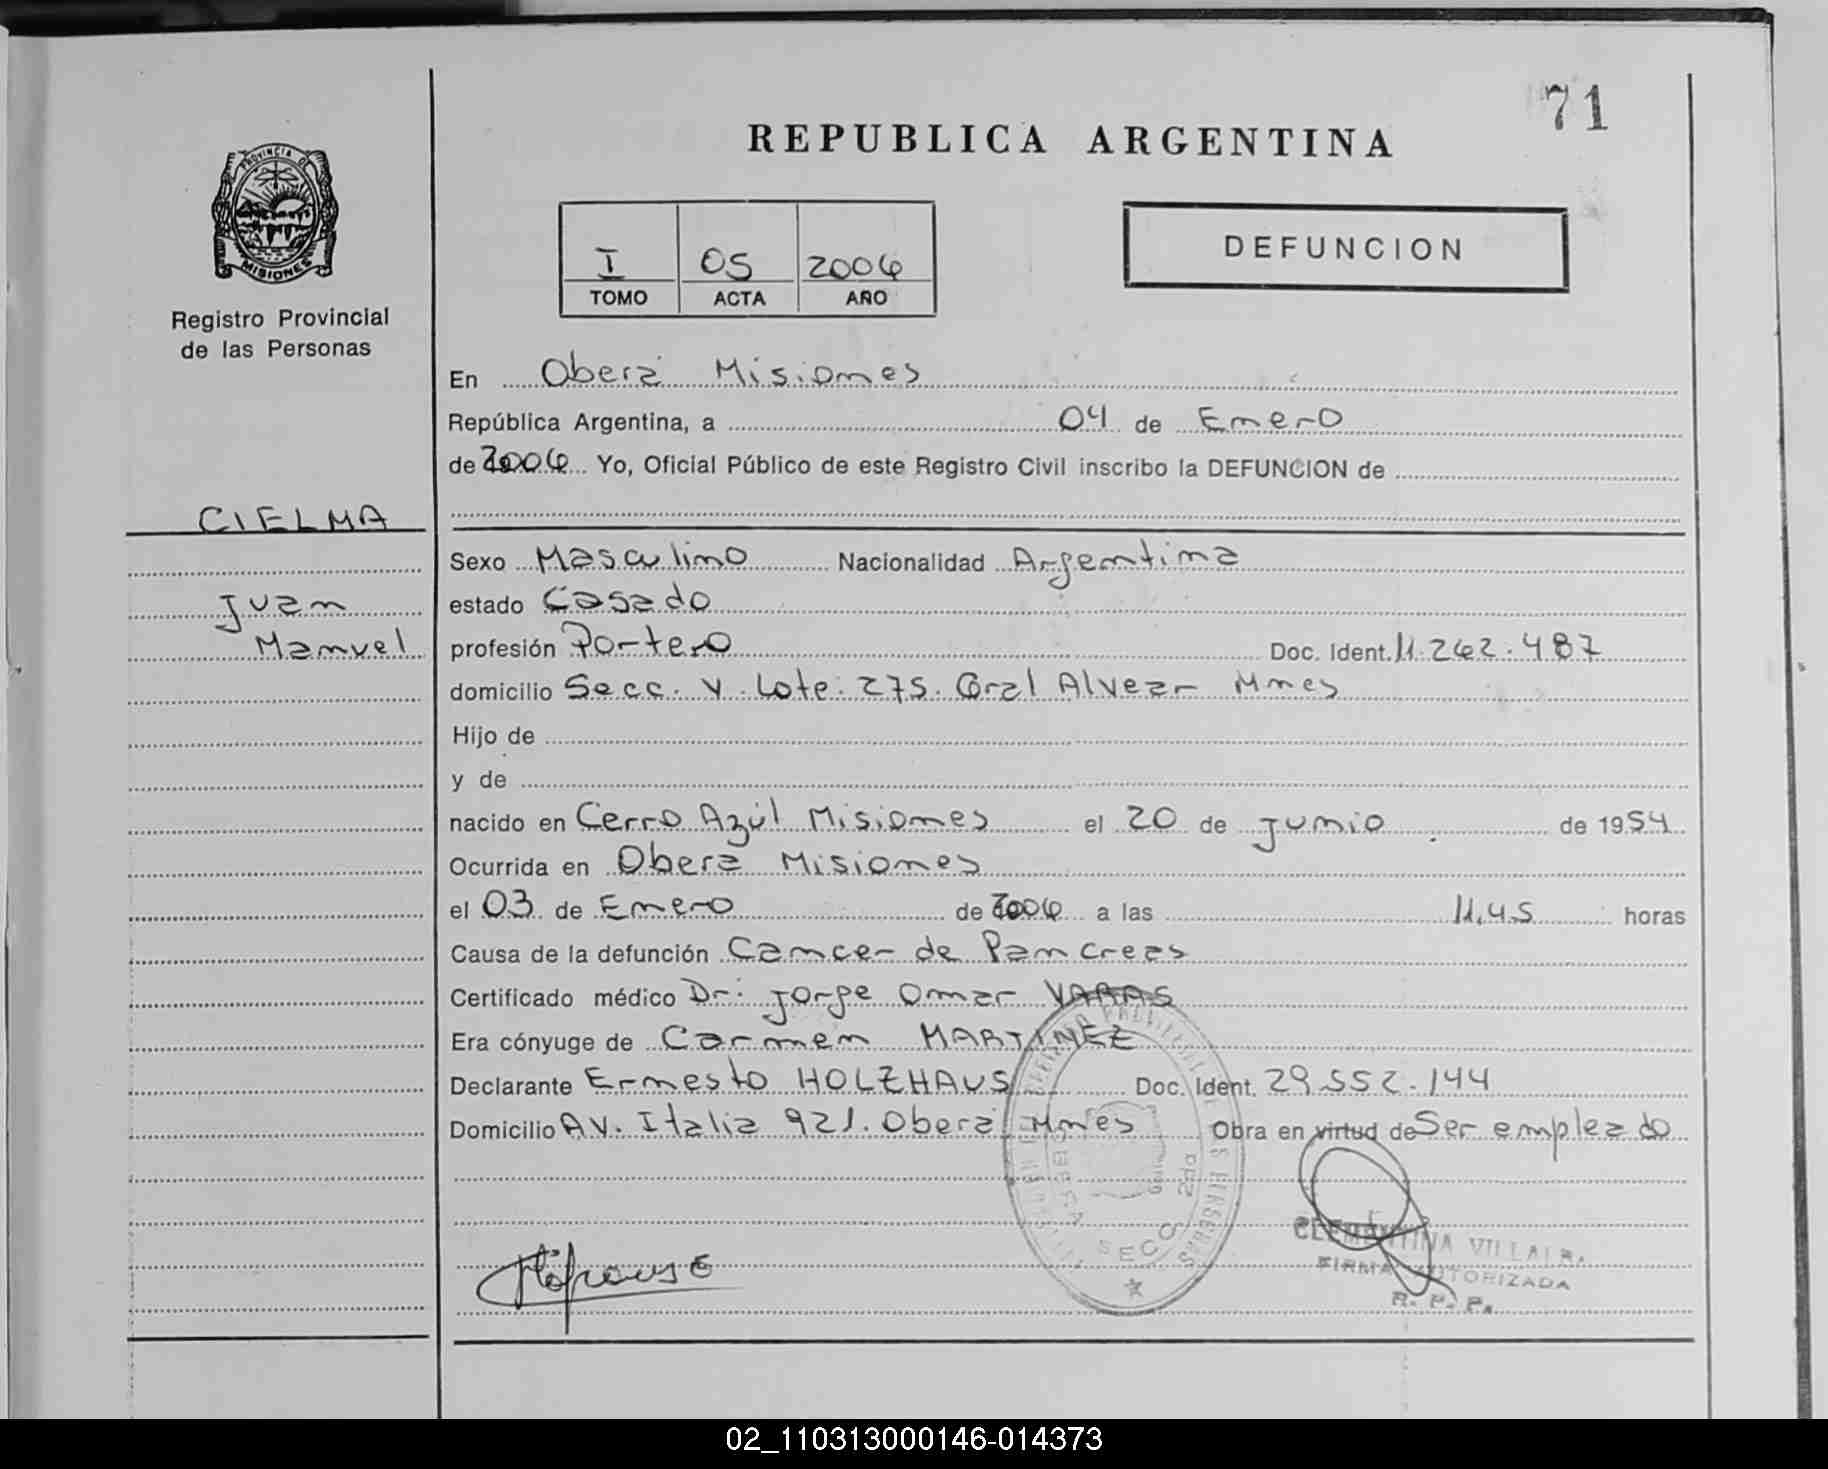 71
REPUBLICA ARGENTINA
PROVINCIA DE
MISIONES
Registro Provincial
de las Personas
I 05 2006
TOMO ACTA AÑO
DEFUNCION
En Oberá Misiones
República Argentina, a 04 de Enero
de 2006 Yo, Oficial Público de este Registro Civil inscribo la DEFUNCION de
CIELMA
Juan
Manuel
Sexo Masculino Nacionalidad Argentina
estado Casado
profesión Portero Doc. Ident. 11.262.487
domicilio Secc. V. Lote: 275. Gral Alvear Mnes
Hijo de
y de
nacido en Cerro Azúl Misiones el 20 de Junio de 1954
Ocurrida en Oberá Misiones
el 03 de Enero de 2006 a las 11,45 horas
Causa de la defunción Cancer de Pancreas
Certificado médico Dr: Jorge Omar VARAS
Era cónyuge de Carmen MARTINEZ
Declarante Ernesto HOLZHAUS Doc. Ident. 29.552.144
Domicilio Av. Italia 921. Oberá Mnes Obra en virtud de Ser empleado
OBERA SECC 2da
CLEMENTINA
FIRMA AUTORIZADA
R. P. P.
02_110313000146-014373